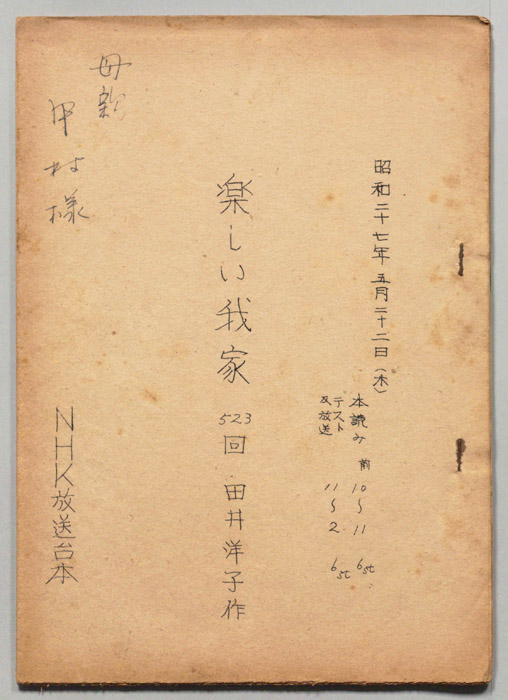 昭和二十七年五月二十二日(木)
本読み 前10～11 6st
テスト及放送 11～2. 6st
楽しい我家 523回 田井洋子作
母親
甲村様
NHK放送台本